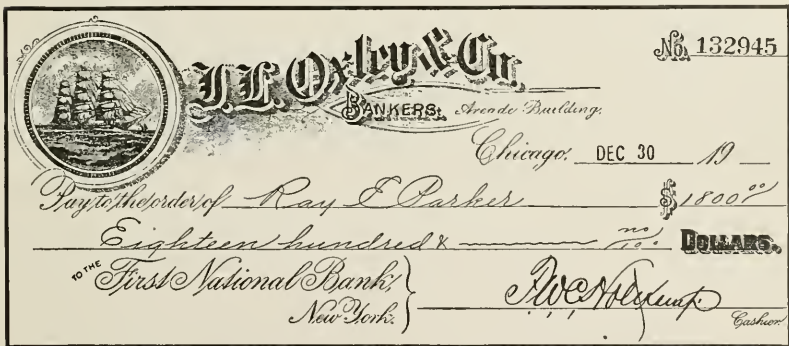 No. 132945
J. L. Oxley & Co.
BANKERS. Arcade Building.
Chicago. DEC 30 19
Pay to the order of Ray E Parker $1800 00
Eighteen hundred & no/100 DOLLARS.
TO THE First National Bank,
New York.
Cashier.